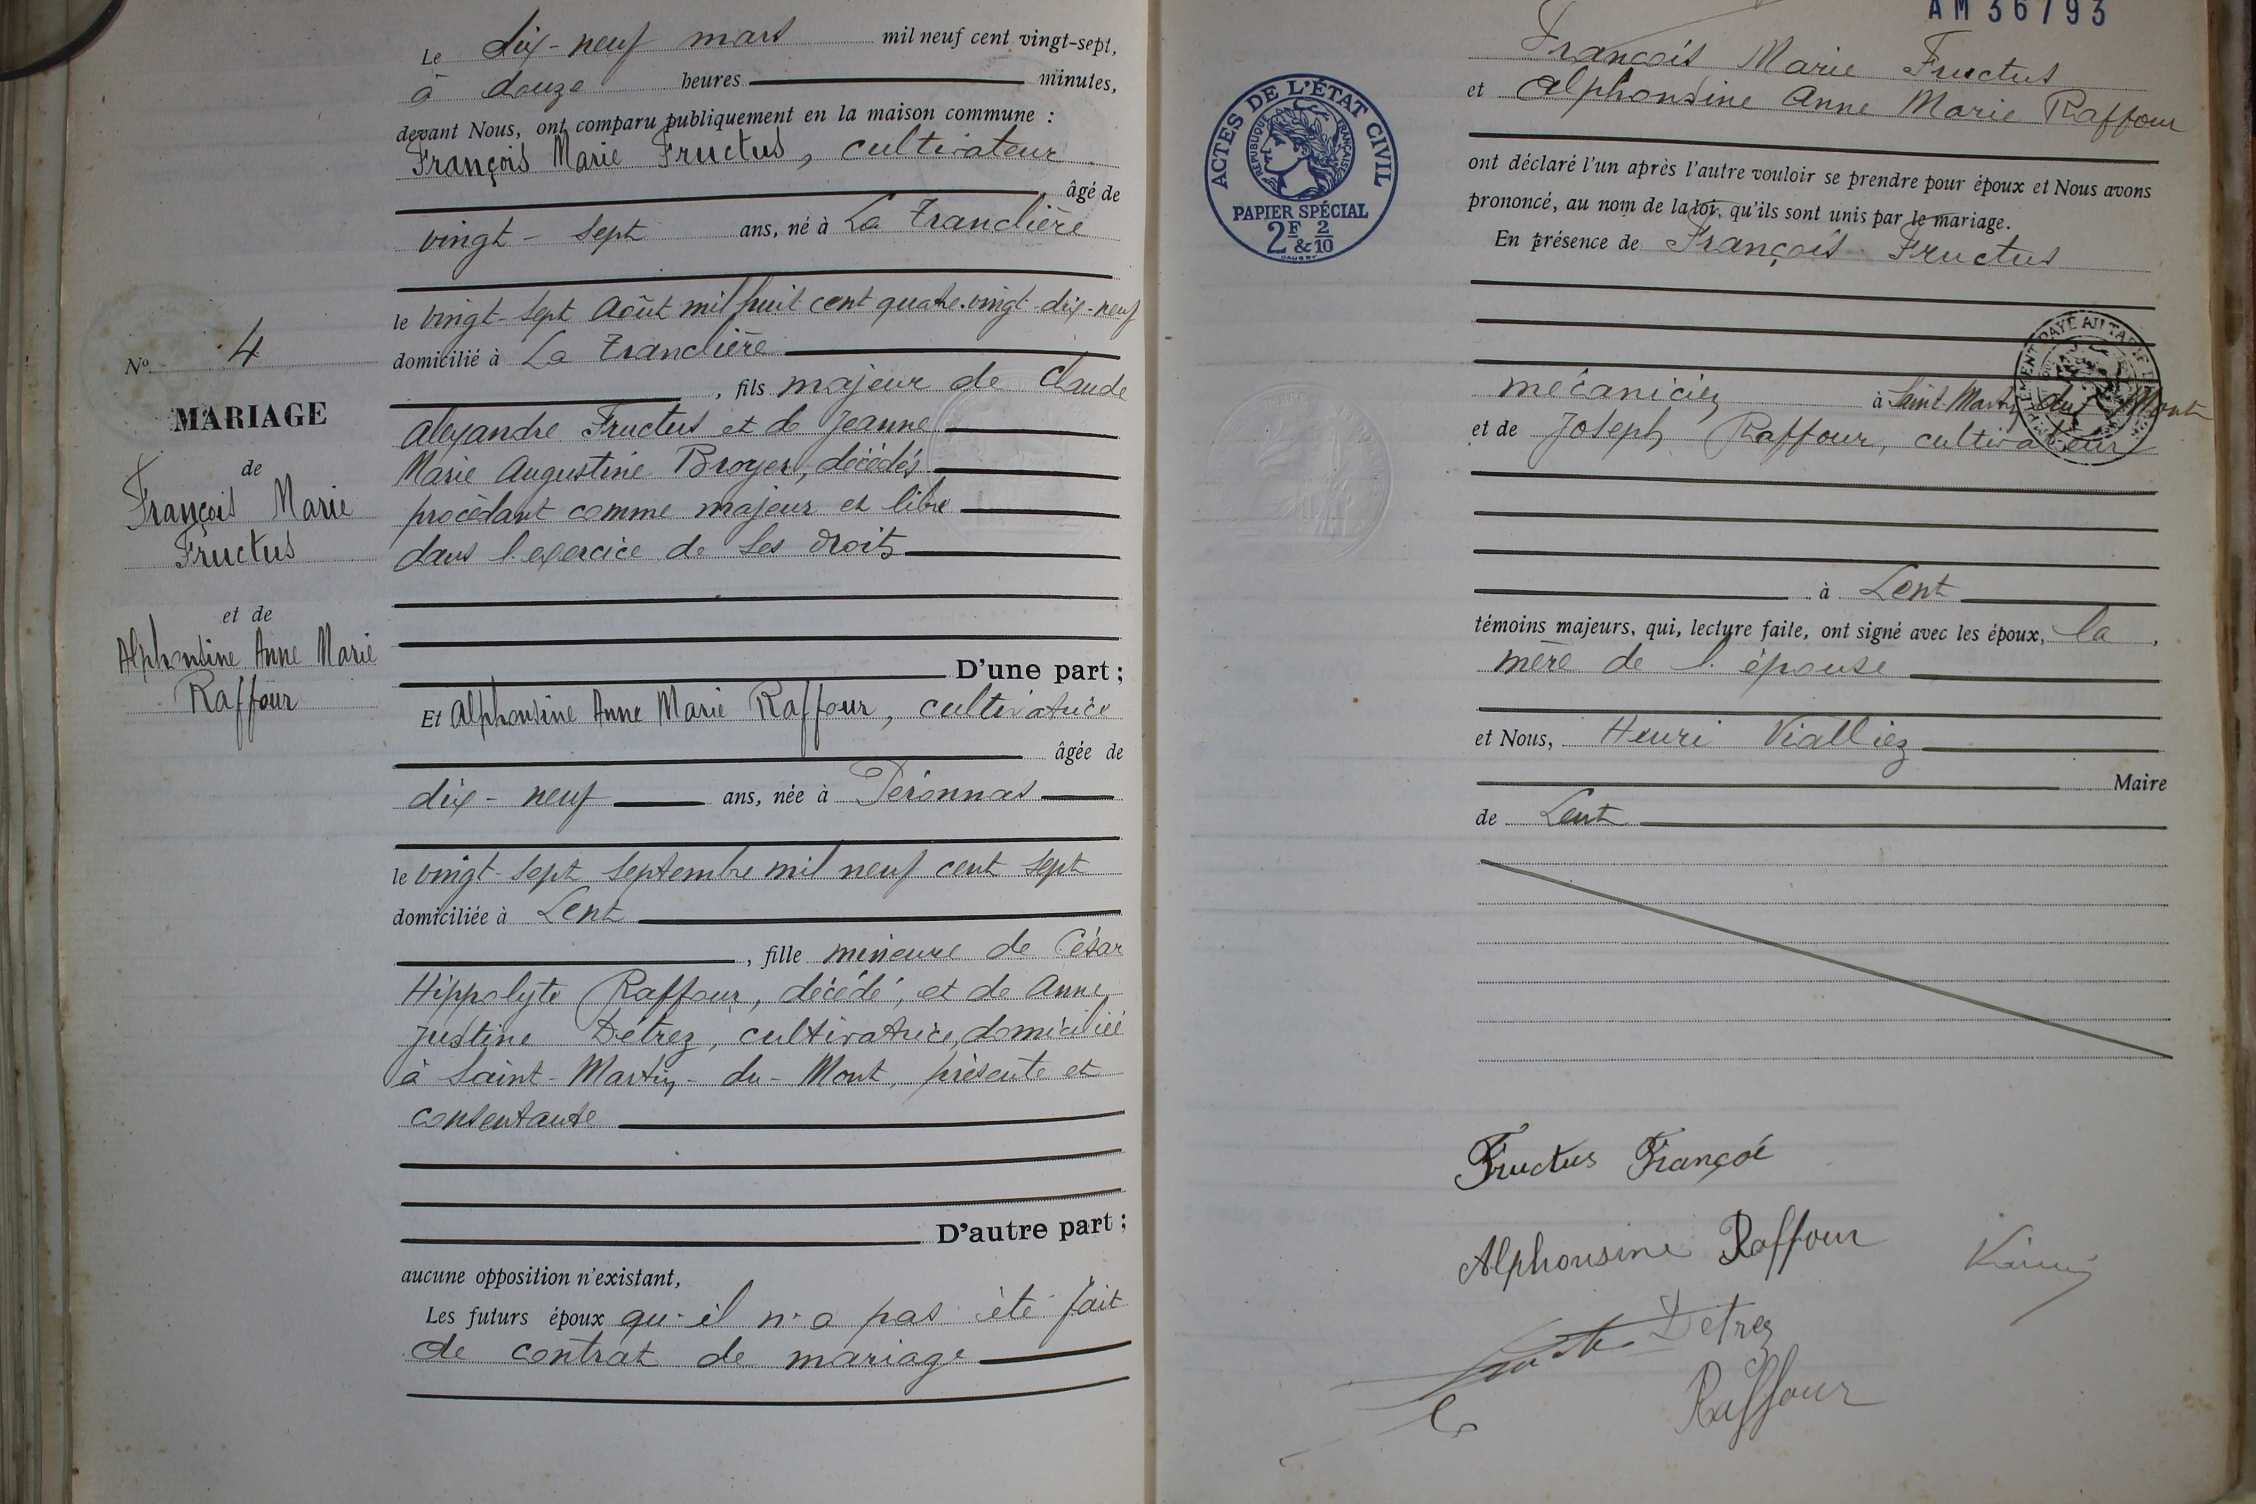 Le dix-neuf mars mil neuf cent vingt-sept,
à douze heures minutes,
devant Nous, ont comparu publiquement en la maison commune :
François Marie Fructus, cultivateur
âgé de
vingt-sept ans, né à La Tranclière
le vingt-sept Août mil huit cent quatre-vingt-dix-neuf
domicilié à La Tranclière
, fils majeur de Claude
Alexandre Fructus et de Jeanne
Marie Augustine Broyer, décédés
procédant comme majeur et libre
dans l'exercice de ses droits
D'une part ;
Et Alphonsine Anne Marie Raffour, cultivatrice
âgée de
dix-neuf ans, née à Péronnas
le vingt-sept septembre mil neuf cent sept
domiciliée à Lent
, fille mineure de César
Hippolyte Raffour, décédé, et de Anne
Justine Détrez, cultivatrice, domiciliée
à Saint-Martin-du-Mont, présente et
consentante
D'autre part ;
aucune opposition n'existant,
Les futurs époux qu'il n'a pas été fait
de contrat de mariage
No 4
MARIAGE
de
François Marie
Fructus
et de
Alphonsine Anne Marie
Raffour
AM 36793
François Marie Fructus
et Alphonsine Anne Marie Raffour
ont déclaré l'un après l'autre vouloir se prendre pour époux et Nous avons
prononcé, au nom de la loi, qu'ils sont unis par le mariage.
En présence de François Fructus
mécanicien à Saint-Martin-du-Mont
et de Joseph Raffour, cultivateur
à Lent
témoins majeurs, qui, lecture faite, ont signé avec les époux, la
mère de l'épouse
et Nous, Henri Viallier
Maire
de Lent
ACTES DE L'ÉTAT CIVIL
RÉPUBLIQUE FRANÇAISE
PAPIER SPÉCIAL
2F & 2/10
Fructus François
Alphonsine Raffour
Détrez
Raffour